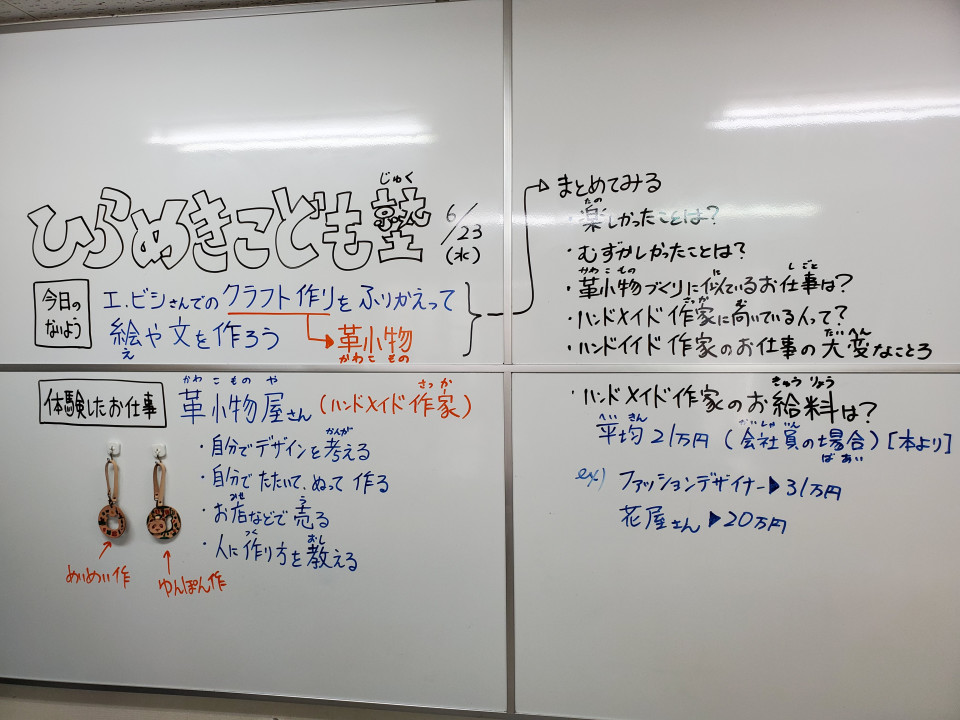 ひらめきこども塾
じゅく
6/23
(水)
今日の
ないよう
エ.ビシさんでのクラフト作りをふりかえって
絵や文を作ろう
え
革小物
かわ こ もの
体験したお仕事
革小物屋さん(ハンドメイド作家)
かわ こ もの や
さっ か
・自分でデザインを考える
かんが
・自分でたたいて、ぬって作る
・お店などで売る
みせ
う
・人に作り方を教える
つく
おし
めいめい作
ゆんぽん作
まとめてみる
・楽しかったことは?
たの
・むずかしかったことは?
・革小物づくりに似ているお仕事は?
かわ こ もの
に
しごと
・ハンドメイド作家に向いている人って?
さっか
む
・ハンドイイド作家のお仕事の大変なところ
たいへん
・ハンドメイド作家のお給料は?
きゅうりょう
平均21万円(会社員の場合)[本より]
へい きん
かいしゃいん
ばあい
ex) ファッションデザイナー▶31万円
花屋さん▶20万円